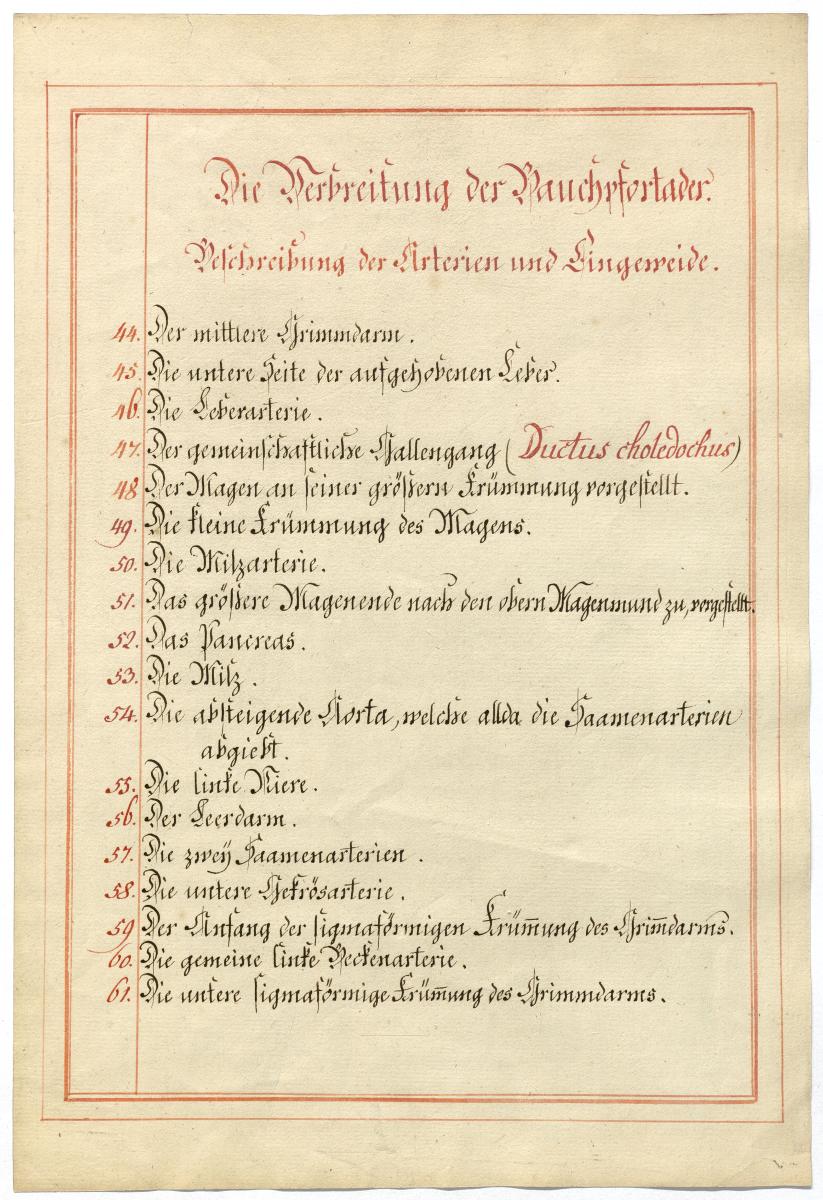 Die Verbreitung der Bauchpfortader.
Beschreibung der Arterien und Eingeweide.
44. Der mittlere Grimmdarm.
45. Die untere Seite der aufgehobenen Leber.
46. Die Leberarterie.
47. Der gemeinschaftliche Gallengang (Ductus choledochus)
48 Der Magen an seiner größern Krümmung vorgestellt.
49. Die kleine Krümmung des Magens.
50. Die Milzarterie.
51. Das größere Magenende nach den obern Magenmund zu, vorgestellt.
52. Das Pancreas.
53. Die Milz.
54. Die absteigende Aorta, welche allda die Saamenarterien
abgiebt.
55. Die linke Niere.
56. Der Leerdarm.
57. Die zweÿ Saamenarterien.
58. Die untere Gekrösarterie.
59 Der Anfang der sigmaförmigen Krüm̅ung des Grim̅darms.
60. Die gemeine linke Beckenarterie.
61. Die untere sigmaförmige Krüm̅ung des Grimmdarms.